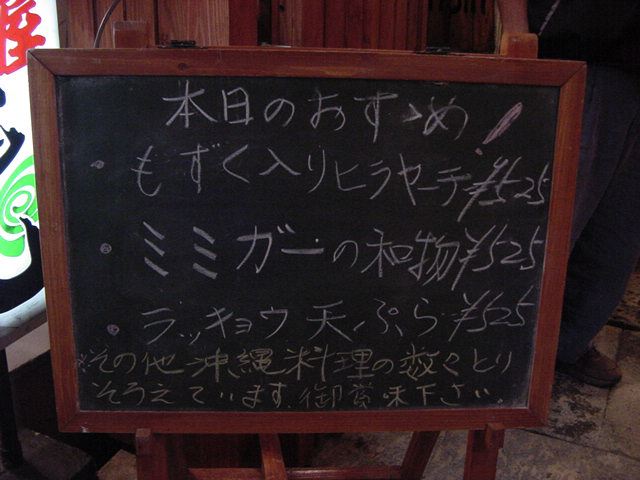 本日のおすゝめ!
・もずく入りヒラヤーチ ¥525
・ミミガーの和物 ¥525
・ラッキョウ天ぷら ¥525
※その他沖縄料理の数々とり
そろえています。御賞味下さい。